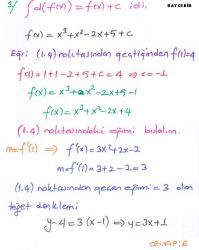 3/ ∫d(f(x)) = f(x) + c idi.
BAYCEBİR
f(x) = x³+x²-2x+5+c
Eğri (1.4) noktasından geçtiğinden f(1)=4
f(1) = 1+1-2+5+c = 4 ⇒ c = -1
f(x) = x³+x²-2x+5-1
f(x) = x³+x²-2x+4
(1.4) noktasındaki eğimi bulalım.
m=f'(1) ⇒ f'(x) = 3x²+2x-2
m=f'(1) = 3+2-2 = 3
(1.4) noktasından geçen eğimi = 3 olan
teğet denklemi
y-4 = 3(x-1) ⇒ y = 3x+1
CEVAP: E